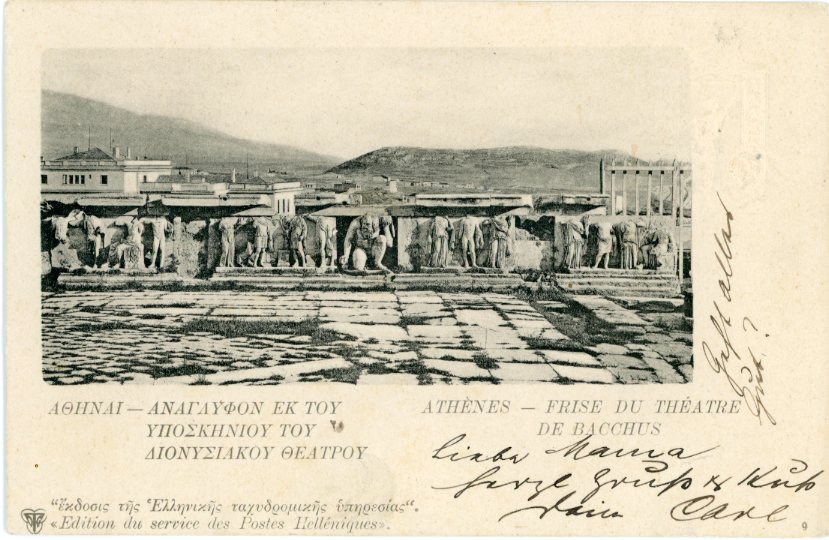 ΑΘΗΝΑΙ — ΑΝΑΓΛΥΦΟΝ ΕΚ ΤΟΥ
ΥΠΟΣΚΗΝΙΟΥ ΤΟΥ
ΔΙΟΝΥΣΙΑΚΟΥ ΘΕΑΤΡΟΥ
ATHÈNES — FRISE DU THÉATRE
DE BACCHUS
Geht alles
Gut?
Liebe Mama
herzl Gruß & Kuß
Dein Carl
"ἔκδοσις τῆς Ἑλληνικῆς ταχυδρομικῆς ὑπηρεσίας".
«Edition du service des Postes Helléniques».
9